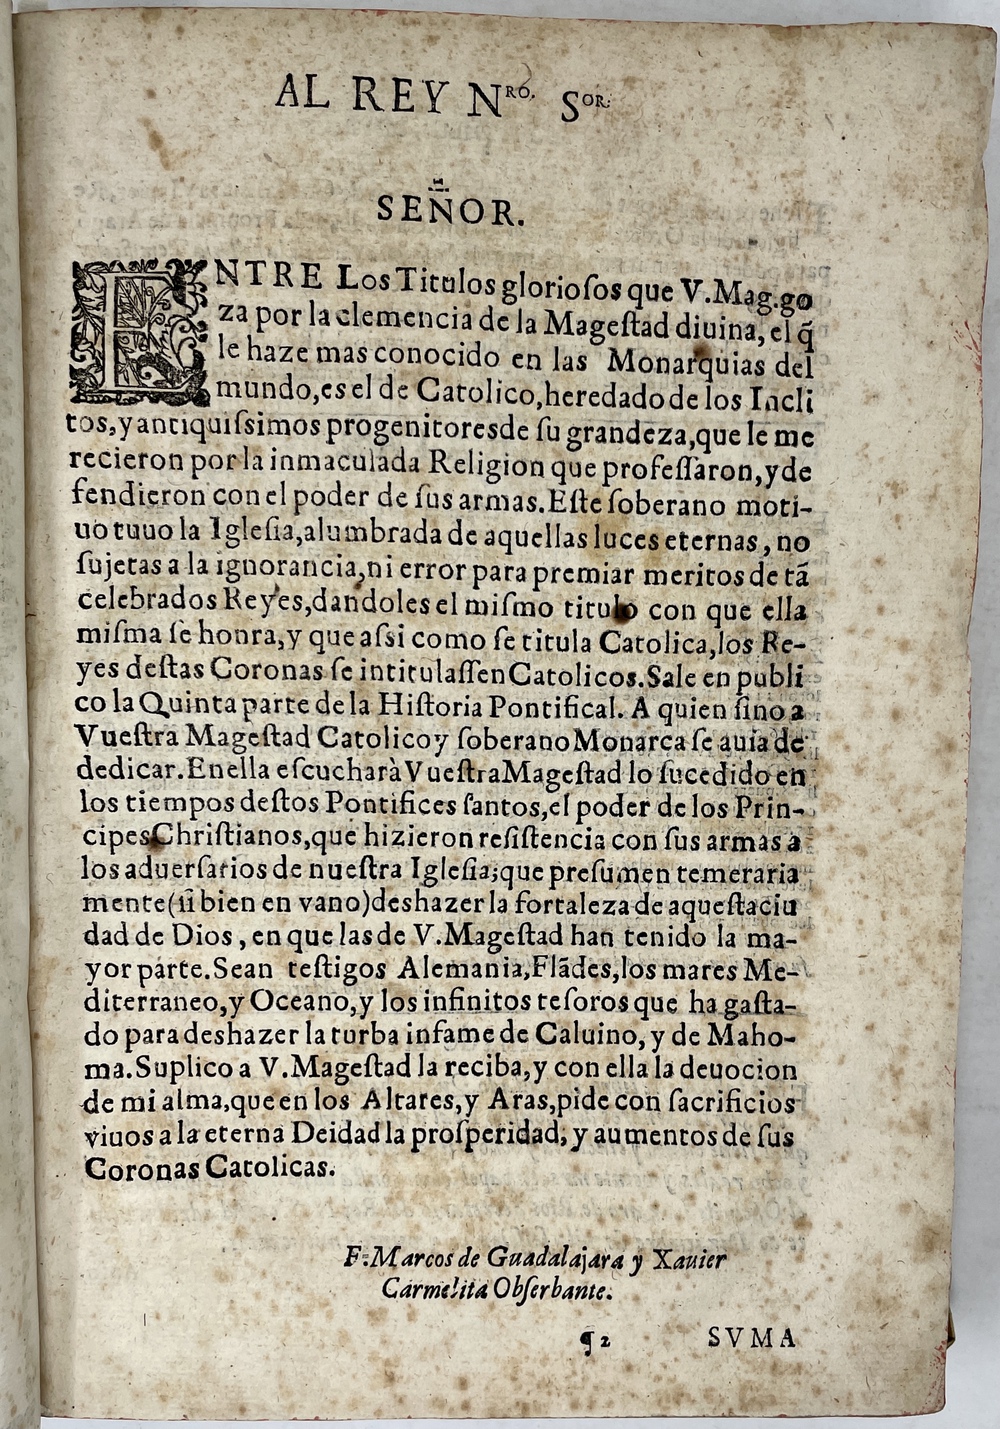 AL REY Nʳᵒ. Sᵒʳ.
SEÑOR.
ENTRE Los Titulos glorioſos que V.Mag.go
za por la clemencia de la Mageſtad diuina, el q̃
le haze mas conocido en las Monarquias del
mundo,es el de Catolico,heredado de los Incli
tos,y antiquiſsimos progenitores de ſu grandeza,que le me
recieron por la inmaculada Religion que profeſſaron,y de
fendieron con el poder de ſus armas.Eſte ſoberano moti-
uo tuuo la Igleſia,alumbrada de aquellas luces eternas, no
ſujetas a la ignorancia,ni error para premiar meritos de tã
celebrados Reyes,dandoles el miſmo titulo con que ella
miſma ſe honra,y que aſsi como ſe titula Catolica,los Re-
yes deſtas Coronas ſe intitulaſſen Catolicos.Sale en publi
co la Quinta parte de la Hiſtoria Pontifical. A quien ſino a
Vueſtra Mageſtad Catolico y ſoberano Monarca ſe auia de
dedicar.En ella eſcucharà Vueſtra Mageſtad lo ſucedido en
los tiempos deſtos Pontifices ſantos,el poder de los Prin-
cipes Chriſtianos,que hizieron reſiſtencia con ſus armas a
los aduerſarios de nueſtra Igleſia;que preſumen temeraria
mente(ſi bien en vano)deshazer la fortaleza de aqueſta ciu
dad de Dios, en que las de V.Mageſtad han tenido la ma-
yor parte.Sean teſtigos Alemania,Flãdes,los mares Me-
diterraneo,y Oceano,y los infinitos teſoros que ha gaſta-
do para deshazer la turba infame de Caluino, y de Maho-
ma.Suplico a V.Mageſtad la reciba,y con ella la deuocion
de mi alma,que en los Altares,y Aras,pide con ſacrificios
viuos a la eterna Deidad la proſperidad, y aumentos de ſus
Coronas Catolicas.
F.Marcos de Guadalajara y Xauier
Carmelita Obſerbante.
¶ 2 SVMA